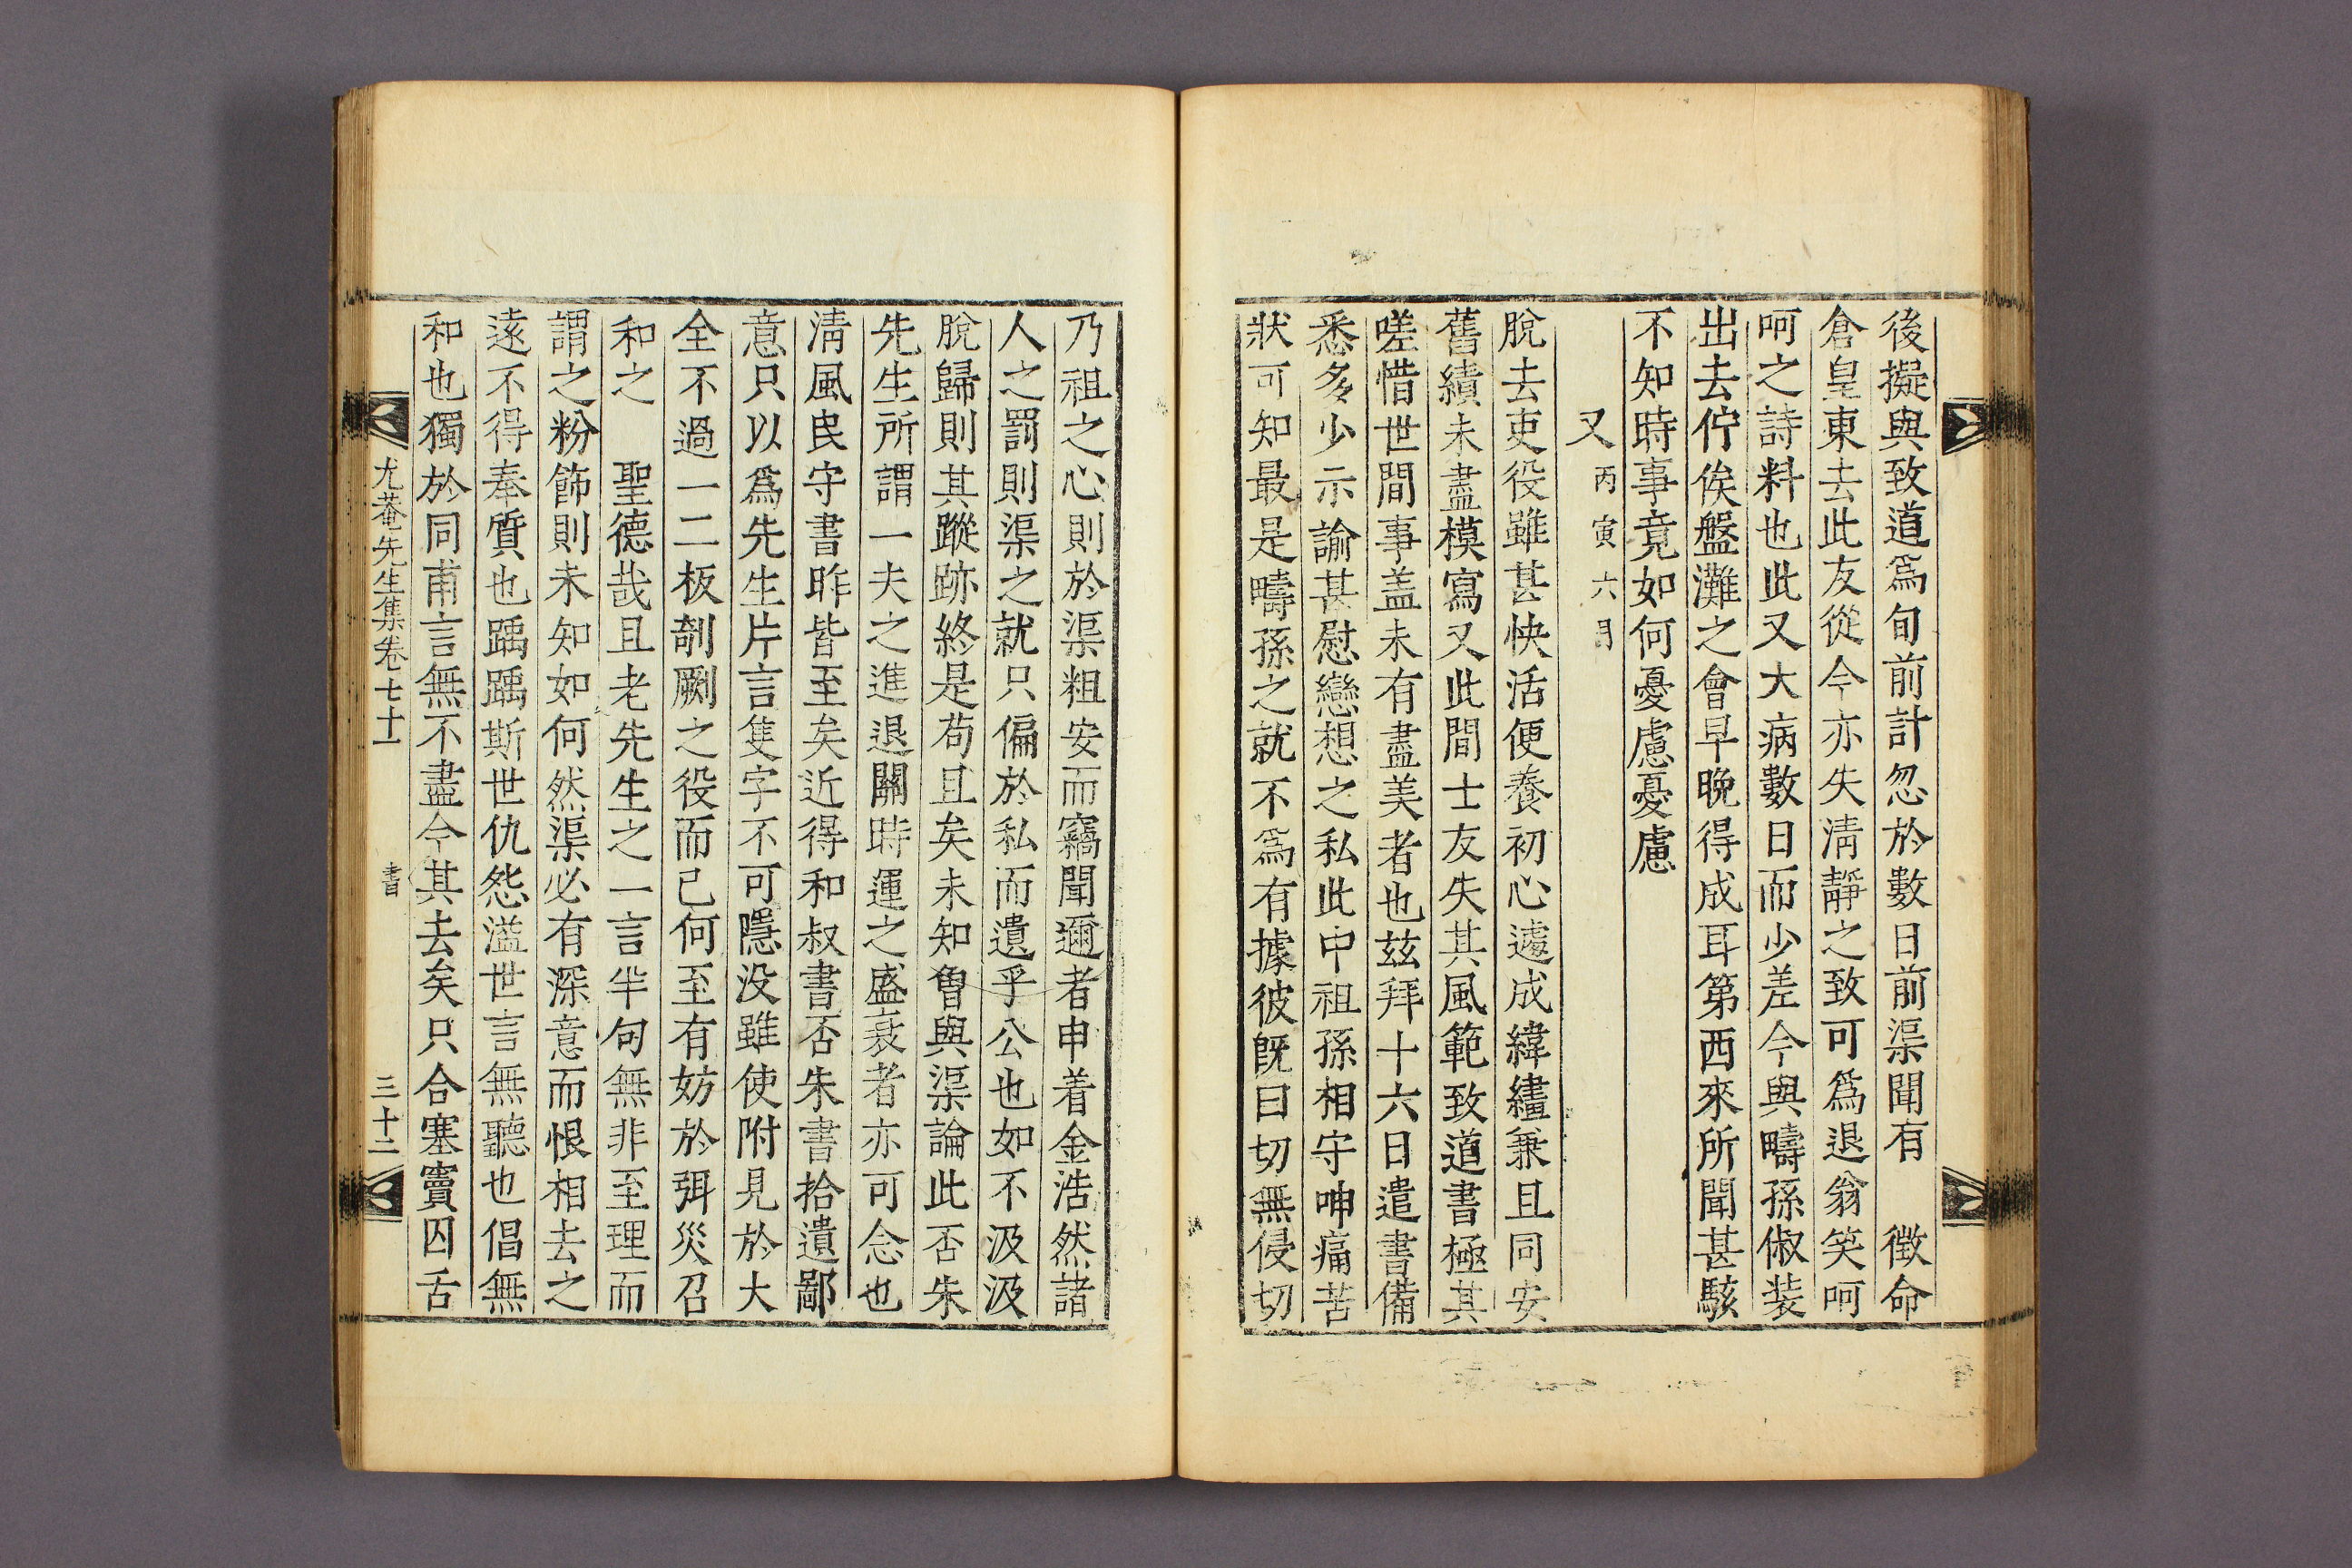 後擬與致道爲旬前計忽於數日前渠聞有　徵命
倉皇東去此友從今亦失淸靜之致可爲退翁笑呵
呵之詩料也此又大病數日而少差今與疇孫俶装
出去佇俟盤灘之會早晩得成耳第西來所聞甚駭
不知時事竟如何憂慮憂慮
又丙寅六月
脫去吏役雖甚快活便養初心遽成緯繣兼且同安
舊績未盡模寫又此間士友失其風範致道書極其
嗟惜世間事盖未有盡美者也玆拜十六日遣書備
悉多少示諭甚慰戀想之私此中祖孫相守呻痛苦
狀可知最是疇孫之就不爲有據彼旣曰切無侵切
乃祖之心則於渠粗安而竊聞邇者申着金浩然諸
人之罰則渠之就只偏於私而遺乎公也如不汲汲
脫歸則其蹤跡終是苟且矣未知魯與渠論此否朱
先生所謂一夫之進退關時運之盛衰者亦可念也
淸風民守書昨皆至矣近得和叔書否朱書拾遺鄙
意只以爲先生片言隻字不可隱没雖使附見於大
全不過一二板剞劂之役而已何至有妨於弭災召
和之　聖德哉且老先生之一言半句無非至理而
謂之粉飾則未知如何然渠必有深意而恨相去之
遠不得奉質也踽踽斯世仇怨溢世言無聽也倡無
和也獨於同甫言無不盡今其去矣只合塞竇囚舌
尤菴先生集卷七十一　書　三十二